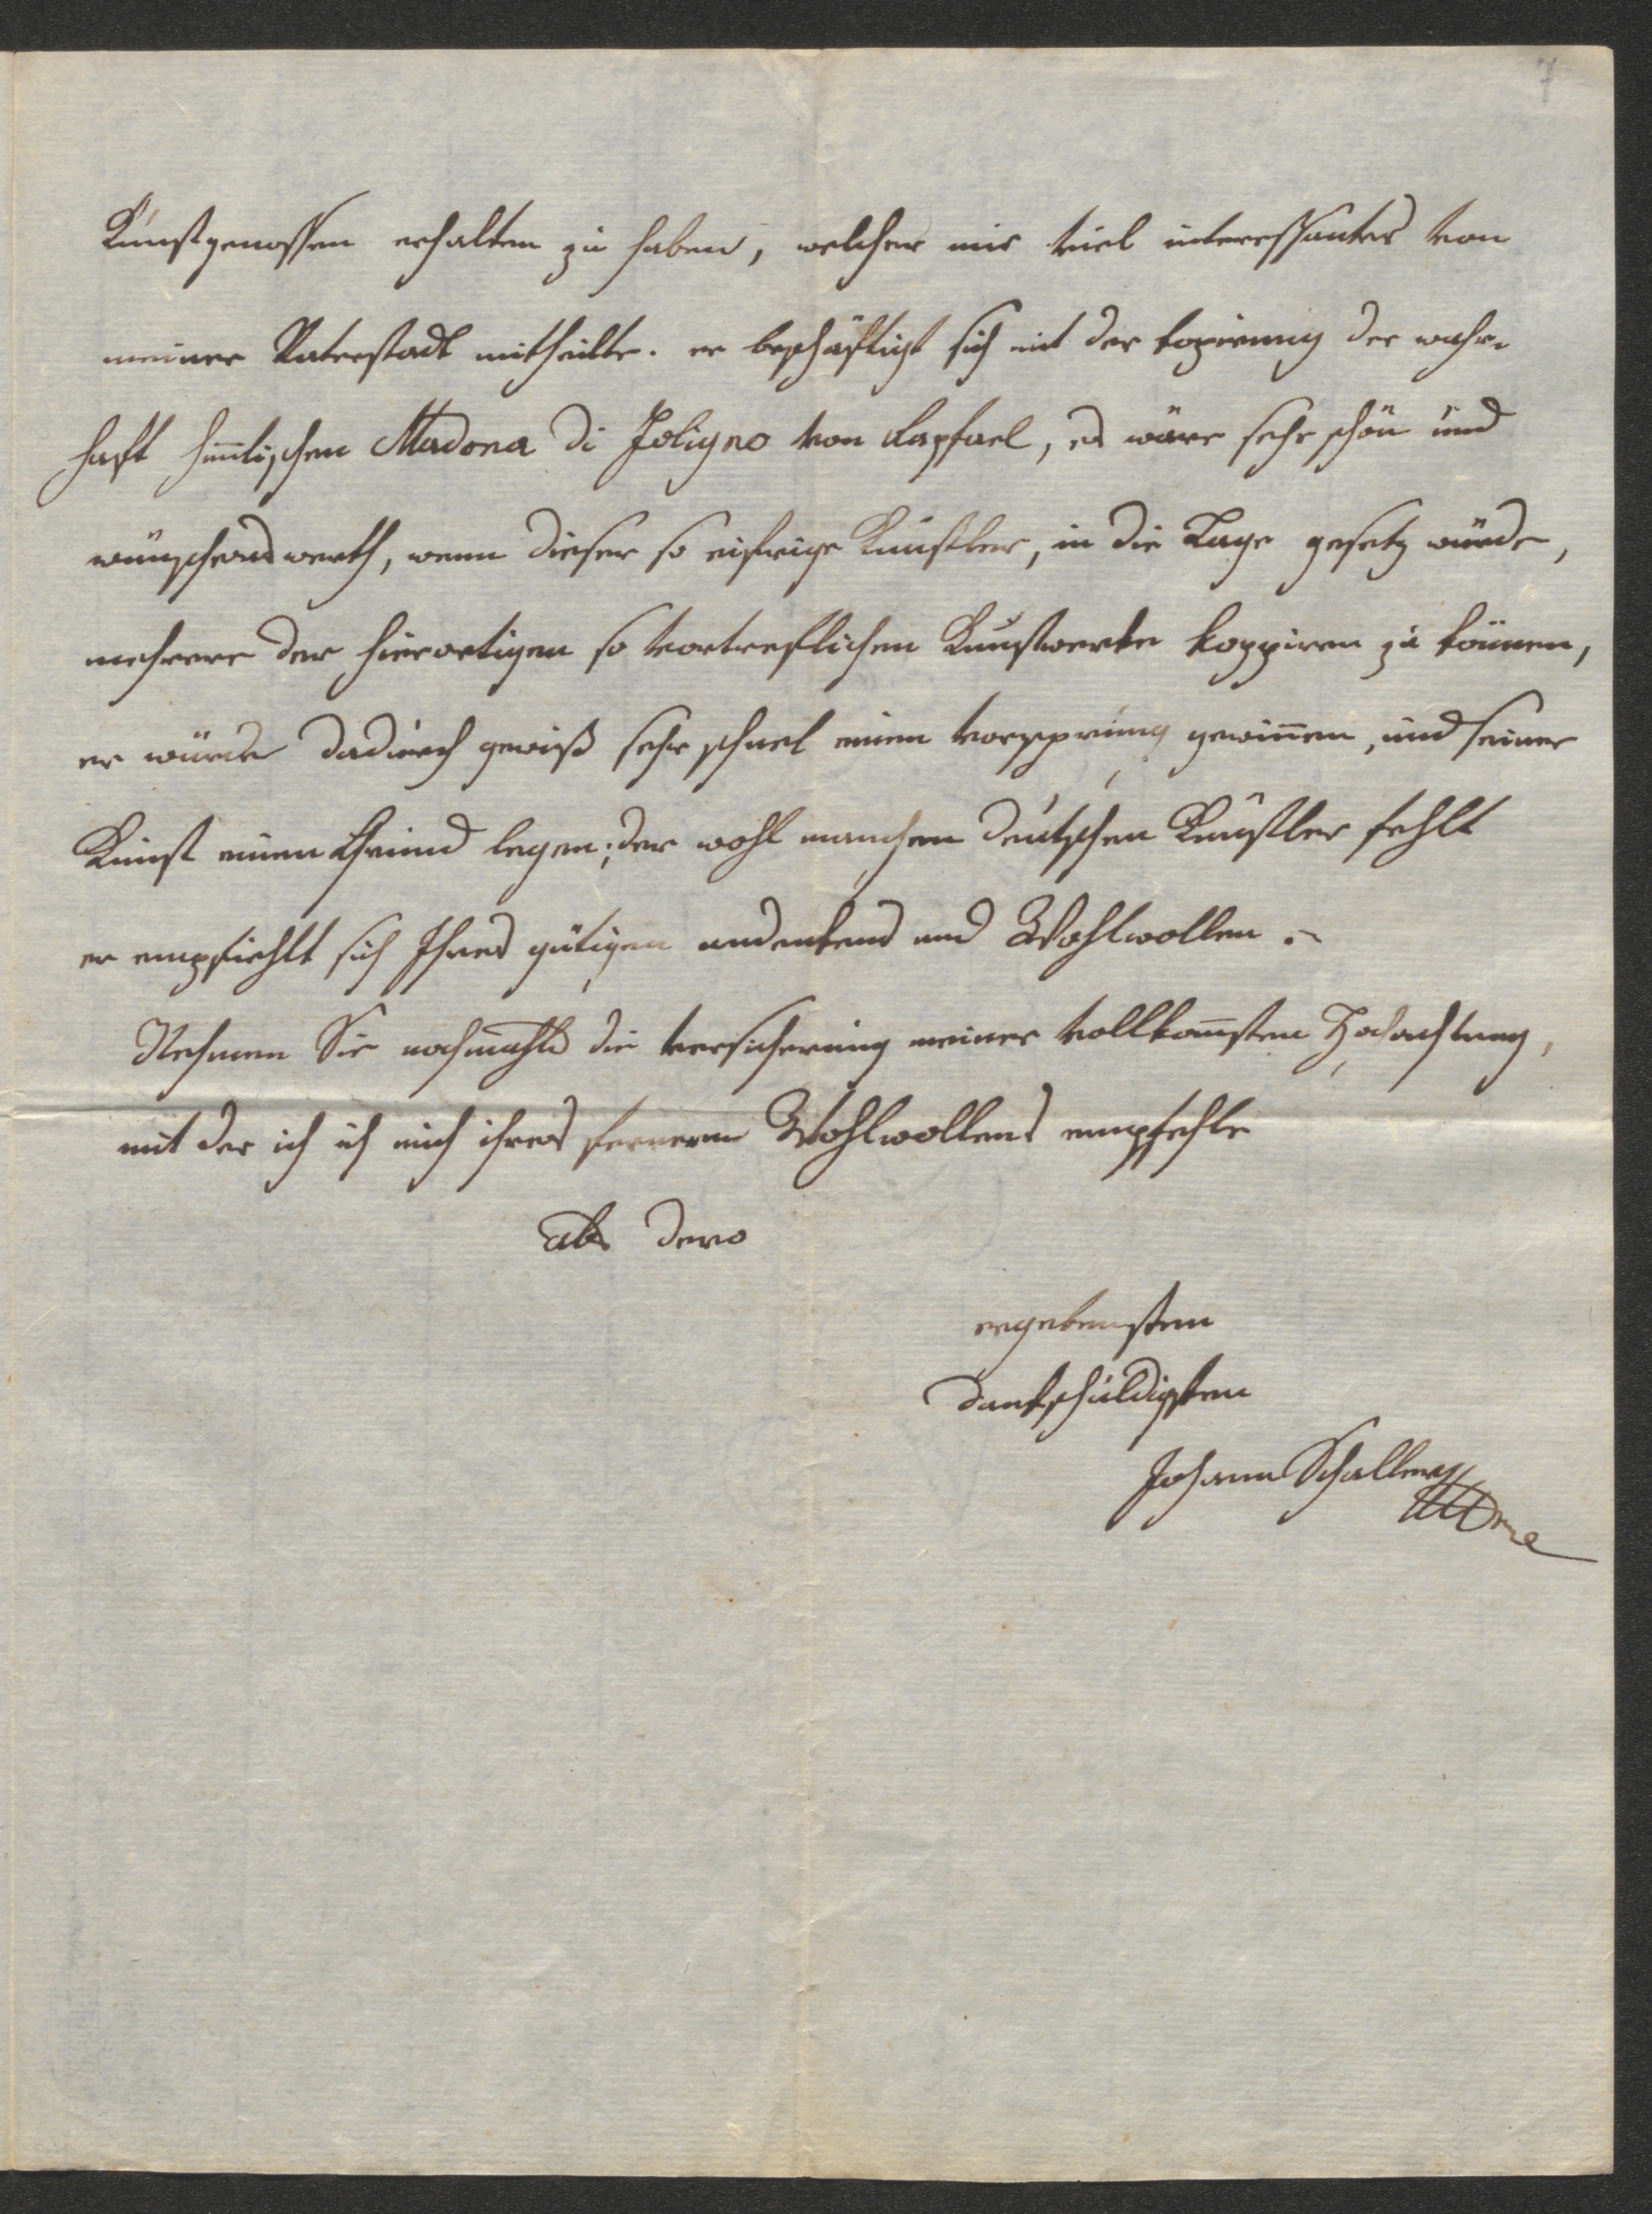 7
Kunstgenossen erhalten zu haben, welcher mir viel interessantes von
meiner Vaterstadt mitheilte. er beschäftigt sich mit der kopirung der wahr-
haft himlischen Madona di Foligno von Rapfael, es wäre sehr schön und
wünschenswerth, wenn dieser so eifrige Künstler, in die Lage gesetz würde,
mehrere der hierortigen so vortreflichen Kunstwerke koppiren zu können,
er würde dadurch gewiß sehr schnel einen vorsprung gewinnen, und seiner
Kunst einen Grund legen, der wohl manchem deutschen Künstler fehlt
er empfiehlt sich Ihres gütigen andenkens und Wohlwollen.
Nehmen Sie nochmahls die versicherung meiner vollkomsten Hochachtung,
mit der ich ich mich ihres fernern Wohlwollens empfehle
als dero
ergebensten
dankschuldigsten
Johann Schaller